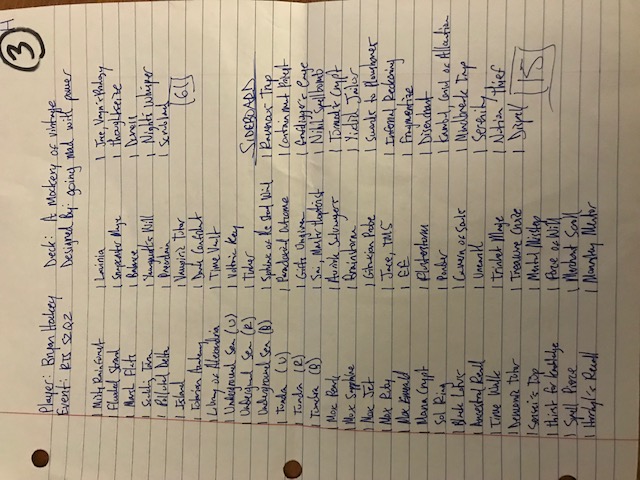 3
Player: Bryan Hockey Deck: A Mockery of vintage
Event: RIS S2Q2 Designed By: going mad with power
1 Misty Rainforest
1 Flooded Strand
1 Marsh Flats
1 Scalding Tarn
1 Polluted Delta
1 Island
1 Tolarian Academy
1 Library of Alexandria
1 Underground Sea (U)
1 Underground Sea (R)
1 Underground Sea (B)
1 Tundra (U)
1 Tundra (R)
1 Tundra (B)
1 Mox Pearl
1 Mox Sapphire
1 Mox Jet
1 Mox Ruby
1 Mox Emerald
1 Mana Crypt
1 Sol Ring
1 Black Lotus
1 Ancestral Recall
1 Time Walk
1 Demonic Tutor
1 Sensei's Top
1 thirst for knowledge
1 Spell Pierce
1 Hurkyl's Recall
1 Lavinia
1 Snapcaster Mage
1 Balance
1 Yawgmoth's Will
1 Preordain
1 Vampiric Tutor
1 Dark Confidant
1 Time Vault
1 Voltaic Key
1 Tinker
1 Sphinx of the Steel Wind
1 Paradoxical Outcome
1 Gifts Ungiven
1 Sai, Master Thopterist
1 Auriok Salvagers
1 Brainstorm
1 Gitaxian Probe
1 Jace, TMS
1 EE
1 Flusterstorm
1 Ponder
1 Cavern of Souls
1 Unearth
1 Trinket Mage
1 Treasure Cruise
1 Mental Misstep
1 Force of Will
1 Merchant Scroll
1 Monastery Mentor
1 Jace, Vryn's Prodigy
1 thoughtseize
1 Night's Whisper
1 Scrubland
61
SIDEBOARD
1 Ravenous Trap
1 Containment Priest
1 Grafdigger's Cage
1 Nihil Spellbomb
1 Tormod's Crypt
1 Yixlid Jailer
1 Swords to Plowshares
1 Infernal Reckoning
1 Fragmentize
1 Disenchant
1 Kambal, Consul of Allocation
1 Mindbreak Trap
1 Serenity
1 Notion Thief
1 Dispel
15